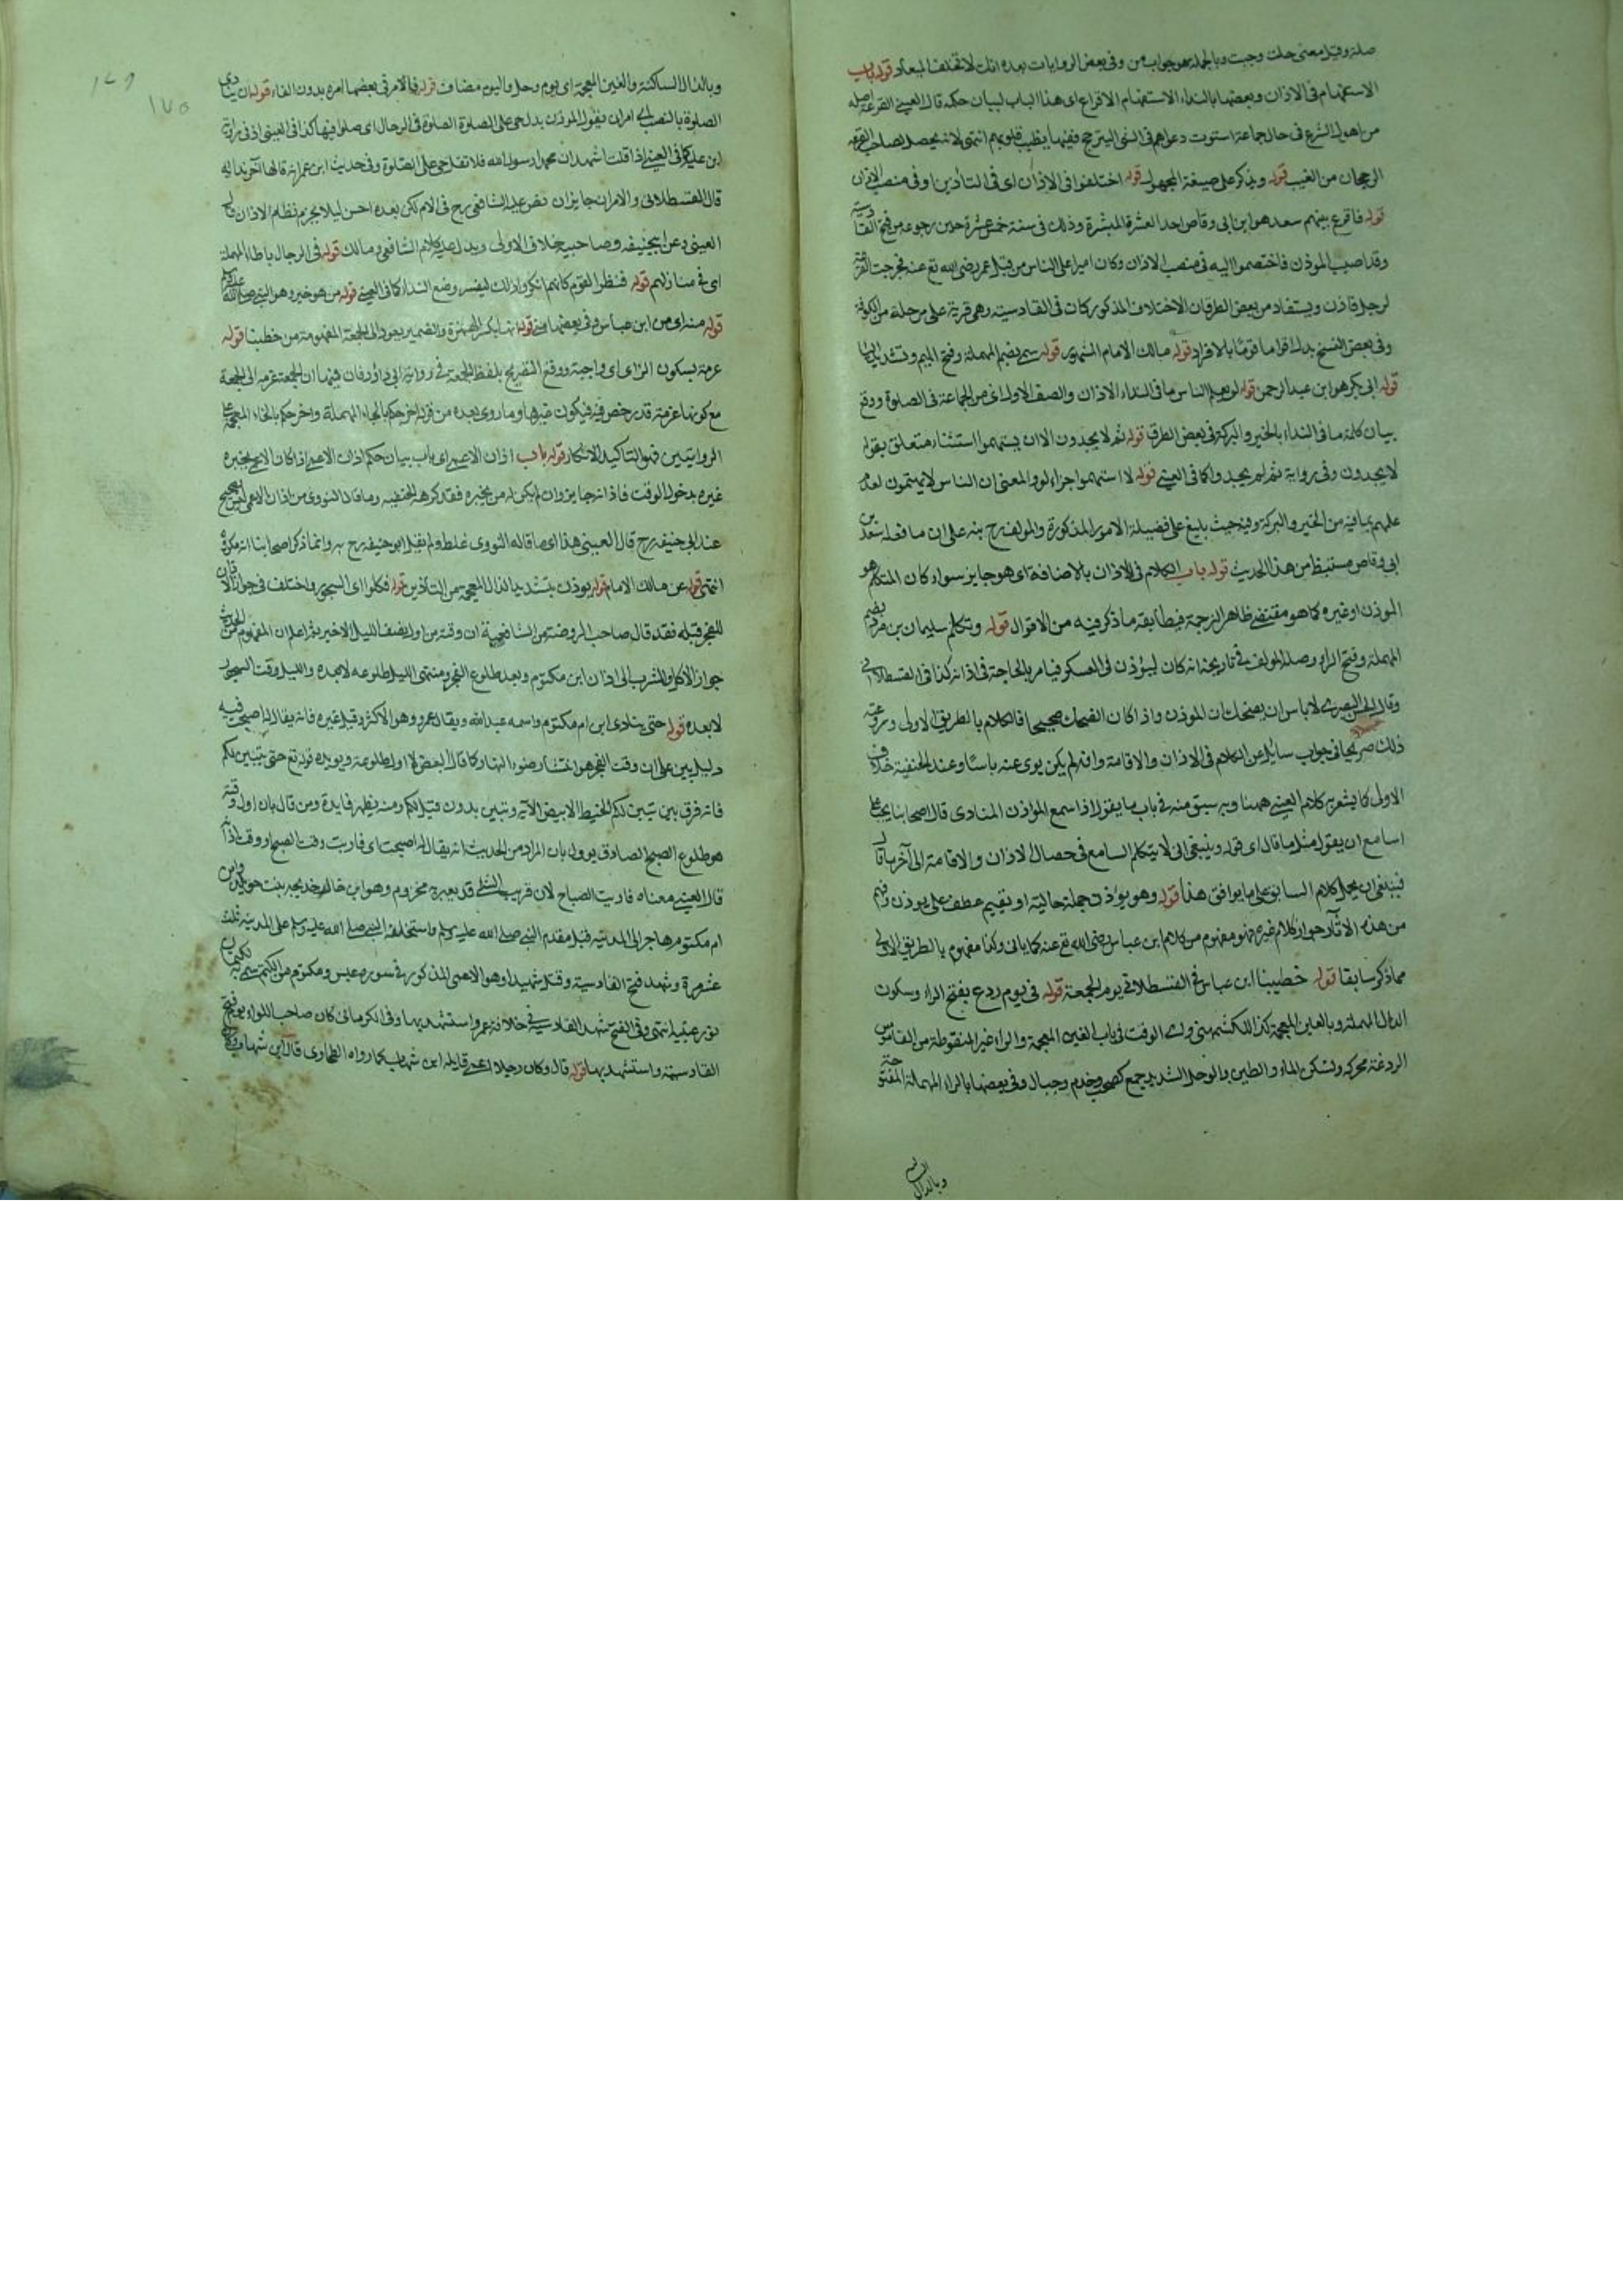 صلة وقيل معنى حلت وجبت وبالجملة هو جواب من وفي بعض الروايات بعده انك لا تخلف الميعاد قوله باب
الاستهام في الاذان وبعضها بالنداء الاستهام الاقراع اى هذا الباب لبيان حكمه قال العيني القرعة اصله
من اصول الشرع في حال جماعة استوت دعواهم في الشى اليترجح وفيها يطيب قلوبهم انتهى لانه يحصل لصاحب القرعة
الرجحان من الغيب قوله ويذكر على صيغة المجهول قوله اختلفوا في الاذان اى في التأذين او في منصب الاذان
قوله فاقرع بينهم سعد هو ابن ابى وقاص احد العشرة المبشرة وذلك في سنة خمس عشرة حين رجوعه من فتح القادسية
وقد اصيب الموذن فاختصموا اليه في منصب الاذان وكان اميرا على الناس من قبل عمر رضى الله تع عنه فخرجت القرعة
لرجل فاذن ويستفاد من بعض الطرق ان الاختلاف المذكور كان في القادسية وهى قرية على مرحلة من الكوفة
وفي بعض النسخ بدل اقواما قوما بالافراد قوله مالك الامام المشهور قوله سمى بضم المهملة وفتح الميم وتشديد الياء
قوله ابى بكر هو ابن عبد الرحمن قوله لو يعلم الناس ما في النداء الاذان والصف الاول اى من الجماعة في الصلوة ووقع
بيان كلمة ما في النداء بالخير والبركة في بعض الطرق قوله ثم لا يجدون الا ان يستهموا استثناء متعلق بقوله
لا يجدون وفي رواية ثم لم يجدوا كما في العيني قوله لاستهموا جزاء لو والمعنى ان الناس لا يستهمون لعدم
علمهم بما فيه من الخير والبركة وفيه حيث بليغ على فضيلة الامور المذكورة والمولف رح بنه على ان ما فعله سعد بن
ابى وقاص مستنبط من هذا الحديث قوله باب الكلام في الاذان بالاضافة اى هو جايز سواء كان المتكلم هو
الموذن او غيره كما هو مقتضى ظاهر الترجمة فيطابقه ما ذكر فيه من الاقوال قوله وتكلم سليمان بن صرد بضم
المهملة وفتح الراء وصله المولف في تاريخه انه كان ليؤذن في العسكر فيامر بالحاجة في اذانه كذا في القسطلانى
وقال الحسن البصرى لا باس ان يضحك ان الموذن واذا كان الضحك صحيحا فالكلام بالطريق الاولى وروى عنه
ذلك صريحا في جواب سائل عن الكلام في الاذان والاقامة وانه لم يكن يرى عنه باسا وعند الحنفية خلاف
الاول كما يشعر به كلام العيني ههنا وبه سبق منه في باب ما يقول اذا سمع الموذن المنادى قال اصحابنا يجب على
السامع ان يقول مثل ما قال اى قوله وينبغى ان لا يتكلم السامع في حصال الاذان والاقامة الى آخر ما قال
فينبغى ان يحمل كلام السابق على ما يوافق هذا قوله وهو يؤذن جملة حالية او يقيم عطف على يوذن وفهم
من هذه الآثار جواز كلام غيره فهو مفهوم من كلام ابن عباس رضى الله تع عنه كما ياتى وكذا مفهوم بالطريق الاولى
مما ذكر سابقا قوله خطبنا ابن عباس في القسطلانى يوم الجمعة قوله في يوم ردغ بفتح الراء وسكون
الدال المهملة وبالغين المعجمة كذا للكشميهنى ولابى الوقت في باب الغين المعجمة والراء غير المنقوطة من القاموس
الردغة محركة وتسكن الماء والطين والوحل الشديد جمع كصحب وخدم وجبال وفي بعضها بالراء المهملة المفتوحة
وبالدال
وبالدال الساكنة والغين المعجمة اى يوم وحل واليوم مضاف قوله فالامر في بعضها امره بدون الفاء قوله ان ينادى
الصلوة بالنصب اى امر ان يقول الموذن بدل حى على الصلوة الصلوة في الرحال اى صلوا فيها كذا في العيني اذ في رواية
ابن علية كما في العيني اذا قلت اشهد ان محمدا رسول الله فلا تقل حى على الصلوة وفي حديث ابن عمر انه قالها آخر ندائه
قال القسطلانى والامران جايزان نص عليه الشافعى رح في الام لكن بعده احسن ليلا ينخرم نظام الاذان قال
العيني وعن ابيحنيفة وصاحبيه خلاف الاولى ويدل عليه كلام الشافعى ومالك قوله في الرحال بالحاء المهملة
اى في منازلهم قوله فنظر القوم كانهم انكروا ذلك ليفسر وضع النداء كما في العيني قوله من هو خير وهو النبى صلى الله عليه وسلم
قوله منه اى من ابن عباس وفي بعضها منى قوله انها بكسر الهمزة والضمير يعود الى الجمعة المفهومة من خطبنا قوله
عزمة بسكون الزاى اى واجبة ووقع التصريح بلفظ الجمعة في رواية ابى داؤد فان فيها ان الجمعة عزمة الى الجمعة
مع كونها عزمة قد رخص فيه فيكون غيرها وما روى بعده من قوله اخرجكم بالحاء المهملة واخرجكم بالخاء المعجمة على
الروايتين فهو التاكيد الانكار قوله باب اذان الاعمى اى باب بيان حكم اذان الاعمى اذا كان الاعمى يخبره
غيره بدخول الوقت فاذانه جايز وان لم يكن له من يخبره فقد كره الحنفية وما قال النووى من اذان الاعمى ليس بصحيح
عند ابى حنيفة رح قال العيني هذا اى ما قاله النووى غلط ولم يقل ابو حنيفة رح به وانما ذكر اصحابنا انه مكروه
انتهى قوله عن مالك الامام قوله يوذن بتشديد الذال المعجمة من التاذين قوله فكلوا اى السحور واختلف في جواز الاذان
للفجر قبله فقد قال صاحب الروضة من الشافعية ان وقته من اول نصف الليل الاخير ثم اعلم ان المفهوم من الحديث
جواز الاكل والشرب الى اذان ابن مكتوم وبعد طلوع الفجر ومنتهى الليل طلوعه لا بعده والليل وقت السحور
لا بعده قوله حتى ينادى ابن ام مكتوم واسمه عبد الله ويقال عمرو وهو الاكثر وقيل غيره فانه يقال له اصبحت فيه
دليل بين على ان وقت الفجر هو انتشار ضوء النهار كما قال البعض لا اول طلوعه ويويده قوله تع حتى يتبين لكم
فانه فرق بين تبين لكم الخيط الابيض الآية وتبين بدون قيد لكم ومنه يظهر فايدة ومن قال بان اول وقته
هو طلوع الصبح الصادق يوول بان المراد من الحديث انه يقال له اصبحت اى قاربت وقت الصبح او وقت اذان
قال العيني معناه قاربت الصباح لان قريب الشى قد يعبر به مخزوم وهو ابن خال خديجة بنت خويلد وابن
ام مكتوم هاجر الى المدينة قبل مقدم النبى صلى الله عليه وسلم واستخلفه النبى صلى الله عليه وسلم على المدينة ثلث
عشرة وشهد فتح القادسية وقتل شهيدا وهو الاعمى المذكور في سورة عبس ومكتوم من الكتم سمى به لكتمان
نور عينيه انتهى وفي الفتح شهد القادسية في خلافة عمر واستشهد بها وفي الكرمانى كان صاحب اللواء يوم فتح
القادسية واستشهد بها قوله قال وكان رجلا اعمى قايله ابن شهاب كما رواه الطحاوى قال ابن شهاب